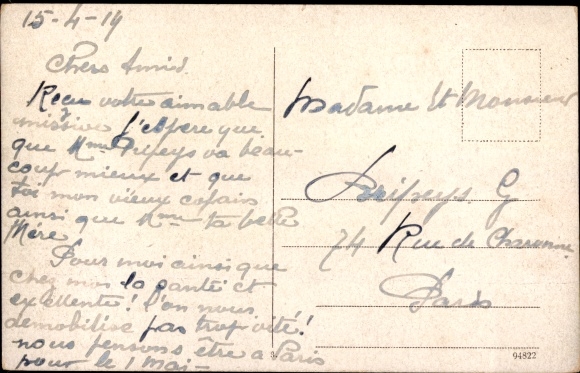 15-4-19
Chers Amis
Reçu votre aimable
missive j'espère que
que Mme Pripeys va beau-
coup mieux et que
toi mon vieux copain
ainsi que Mme ta belle
Mère
Pour moi ainsi que
chez moi la santé et
excellente! l'on nous
démobilise pas trop vite!
nous pensons être a Paris
pour le 1 Mai-
Madame Et Monsieur
Pripeys G
74 Rue de Charonne
Paris
94822